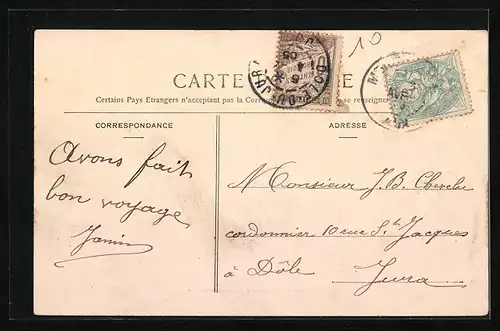 10
CARTE
Certains Pays Etrangers n'acceptant pas la se renseigner
CORRESPONDANCE
ADRESSE
Avons fait
bon voyage
Janin
Monsieur J.B. Chevelu
cordonnier 10 rue St Jacques
à Dôle Jura
DOLE-DU-JURA